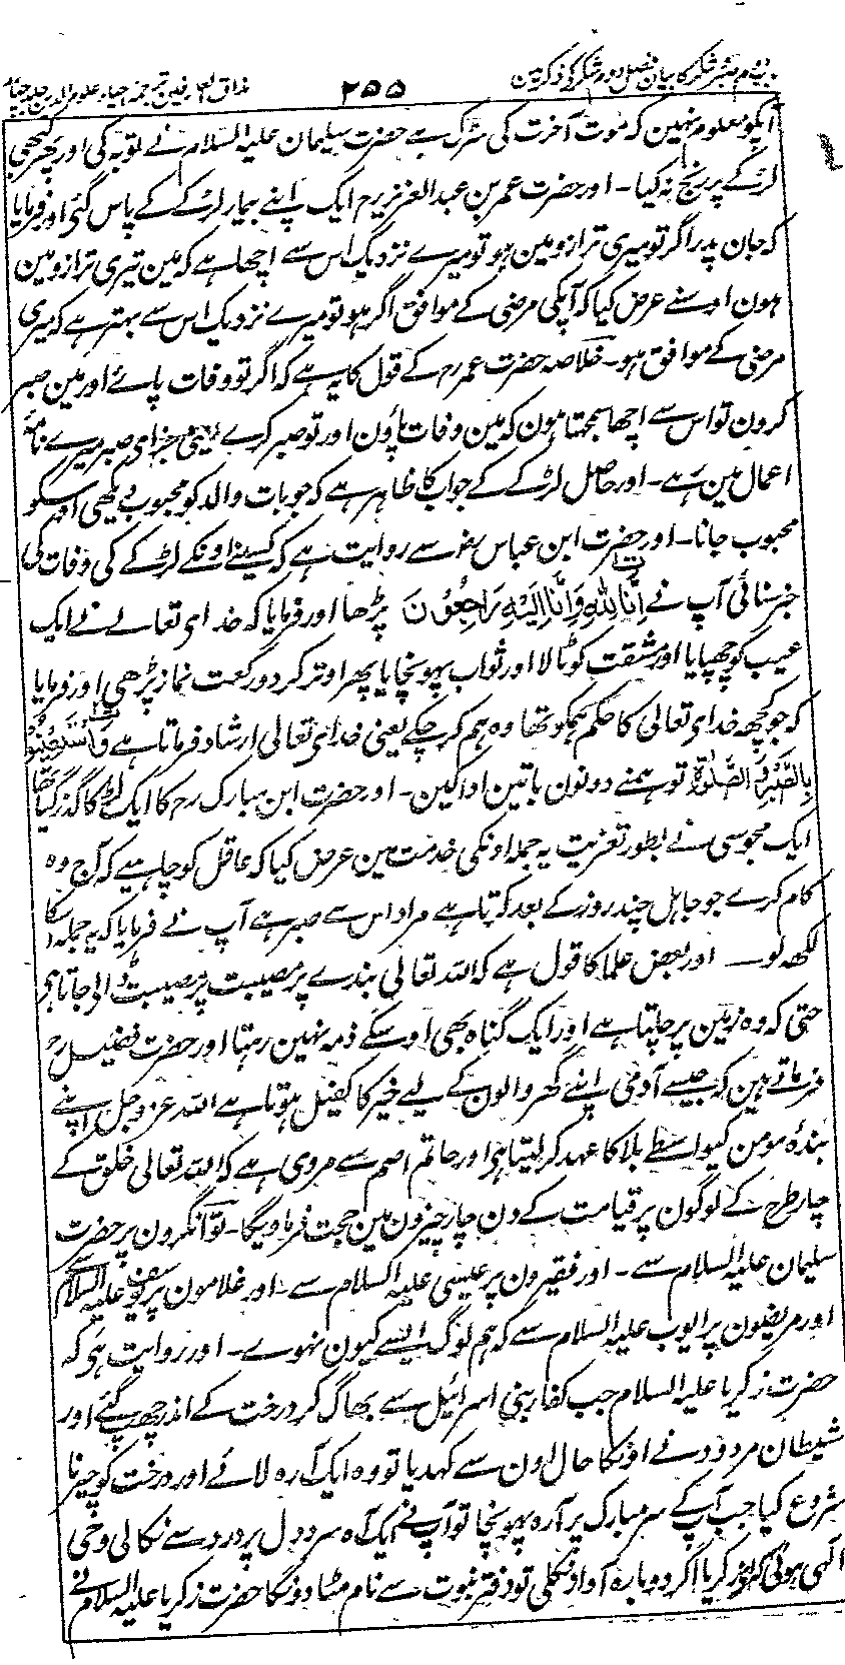 باب دوم صبر و شکر کا بیان فصل دوم شکر کے ذکر مین ۲۵۵ مذاق العارفین ترجمہ احیاء علوم الدین جلد چہارم
آپکو معلوم نہین کہ موت آخرت کی سڑک ہے حضرت سلیمان علیہ السلام نے توبہ کی اور پھر کبھی
لڑکے پر رنج نہ کیا ۔ اور حضرت عمر بن عبدالعزیز رح ایک اپنے بیمار لڑکے کے پاس گئے اور فرمایا
کہ جان پدر اگر تو میری ترازو مین ہو تو میرے نزدیک اس سے اچھا ہے کہ مین تیری ترازو مین
ہون اوسنے عرض کیا کہ آپکی مرضی کے موافق اگر ہو تو میرے نزدیک اس سے بہتر ہے کہ میری
مرضی کے موافق ہو ۔ خلاصہ حضرت عمر رح کے قول کا یہ ہے کہ اگر تو وفات پائے اور مین صبر
کرون تو اس سے اچھا سمجھتا ہون کہ مین وفات پاؤن اور تو صبر کرے یعنی جزای صبر میرے نامۂ
اعمال مین رہے ۔ اور حاصل لڑکے کے جواب کا ظاہر ہے کہ جو بات والد کو محبوب دیکھی اوسکو
محبوب جانا ۔ اور حضرت ابن عباس رضہ سے روایت ہے کہ کسینے اونکے لڑکے کی وفات کی
خبر سنائی آپ نے اِنَّا لِلّٰهِ وَاِنَّا اِلَيْهِ رَاجِعُوْنَ پڑھا اور فرمایا کہ خدای تعالے نے ایک
عیب کو چھپایا اور مشقت کو ٹالا اور ثواب پہونچایا پھر اوتر کر دو رکعت نماز پڑھی اور فرمایا
کہ جو کچھ خدای تعالی کا حکم ہمکو تھا وہ ہم کر چکے یعنی خدای تعالی ارشاد فرماتا ہے وَاسْتَعِيْنُوْا
بِالصَّبْرِ وَ الصَّلٰوةِ تو ہمنے دونون باتین ادا کین ۔ اور حضرت ابن مبارک رح کا ایک لڑکا گذر گیا تھا
ایک مجوسی نے بطور تعزیت یہ جملہ اونکی خدمت مین عرض کیا کہ عاقل کو چاہیے کہ آج وہ
کام کرے جو جاہل چند روز کے بعد کرتا ہے مراد اس سے صبر ہے آپ نے فرمایا کہ یہ جملہ اسکا
لکھ لو ۔ اور بعض علما کا قول ہے کہ اللہ تعالی بندے پر مصیبت پر مصیبت ڈالے جاتا ہی
حتی کہ وہ زمین پر چلتا ہے اور ایک گناہ بھی اوسکے ذمہ نہین رہتا اور حضرت فضیل رح
فرماتے ہین کہ جیسے آدمی اپنے گھر والون کے لیے خیر کا کفیل ہوتا ہے اللہ عز و جل اپنے
بندۂ مومن کیواسطے بلا کا عہد کر لیتا ہی اور حاتم اصم سے مروی ہے کہ اللہ تعالی خلق کے
چار طرح کے لوگون پر قیامت کے دن چار چیزون مین حجت فرماویگا ۔ توانگرون پر حضرت
سلیمان علیہ السلام سے ۔ اور فقیرون پر عیسی علیہ السلام سے ۔ اور غلامون پر یوسف علیہ السلام سے
اور مریضون پر ایوب علیہ السلام سے کہ ہم لوگ ایسے کیون نہوے ۔ اور روایت ہی کہ
حضرت زکریا علیہ السلام جب کفار بنی اسرائیل سے بھاگ کر درخت کے اندر چھپ گئے اور
شیطان مردود نے اونکا حال اون سے کہدیا تو وہ ایک آرہ لائے اور درخت کو چیرنا
شروع کیا جب آپ کے سر مبارک پر آرہ پہونچا تو آپ نے ایک آہ سرد دل پر درد سے نکالی وحی
الٰہی ہوئی کہ زکریا اگر دوبارہ آواز نکلی تو دفتر نبوت سے نام مٹا دونگا حضرت زکریا علیہ السلام نے